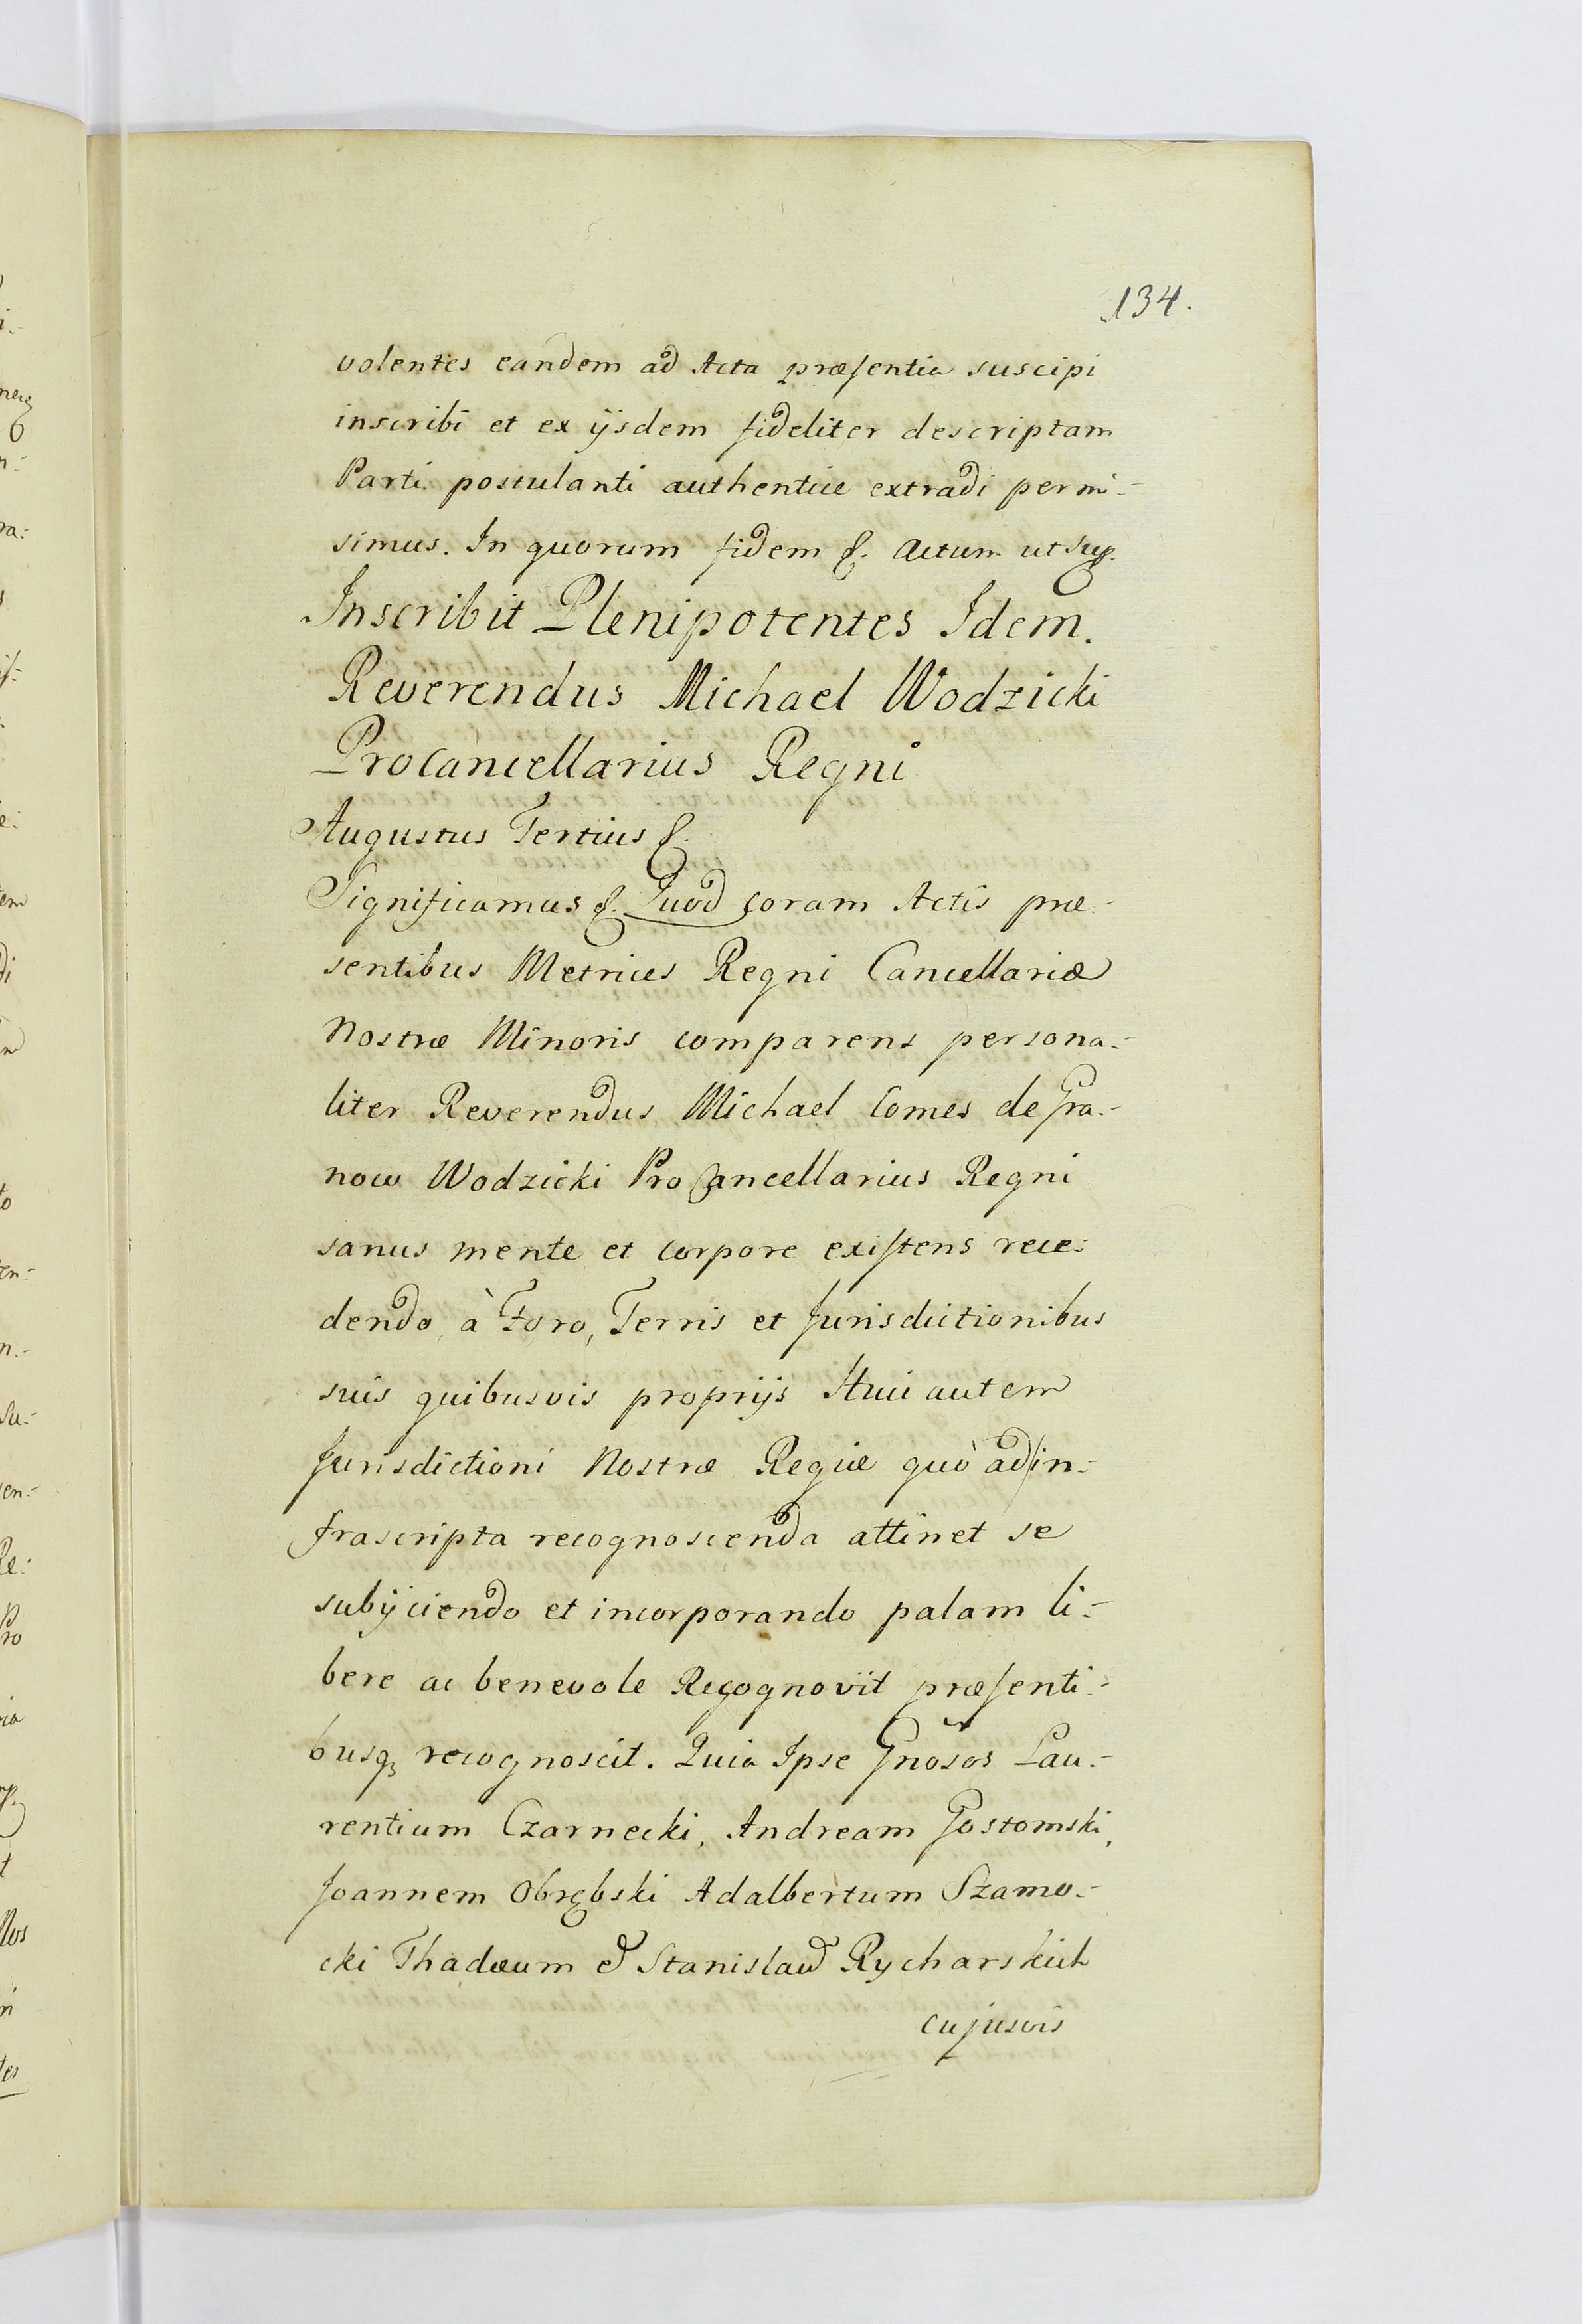 134.
volentes eandem ad Acta præsentia suscipi
inscribi et ex ijsdem fideliter descriptam
Parti postulanti authentice extradi permi-
simus. In quorum fidem &. Actum ut sup.
Inscribit Plenipotentes Idem.
Reverendus Michael Wodzicki
Procancellarius Regni
Augustus Tertius &.
Significamus &. Quod coram Actis præ-
sentibus Metrices Regni Cancellariæ
Nostræ Minoris comparens persona-
liter Reverendus Michael Comes de Gra-
now Wodzicki ProCancellarius Regni
sanus mente et corpore existens rece-
dendo à Foro, Terris et Jurisdictionibus
suis quibusvis proprijs Huic autem
Jurisdictioni Nostræ Regiæ quò ad in-
frascripta recognoscenda attinet se
subijciendo et incorporando palam li-
bere ac benevole Recognovit præsenti-
busq; recognoscit. Quia Ipse Gnosos Lau-
rentium Czarnecki, Andream Gostomski,
Joannem Obrębski Adalbertum Szamo-
cki Thadæum & Stanislaw Rycharskich
cujusvis